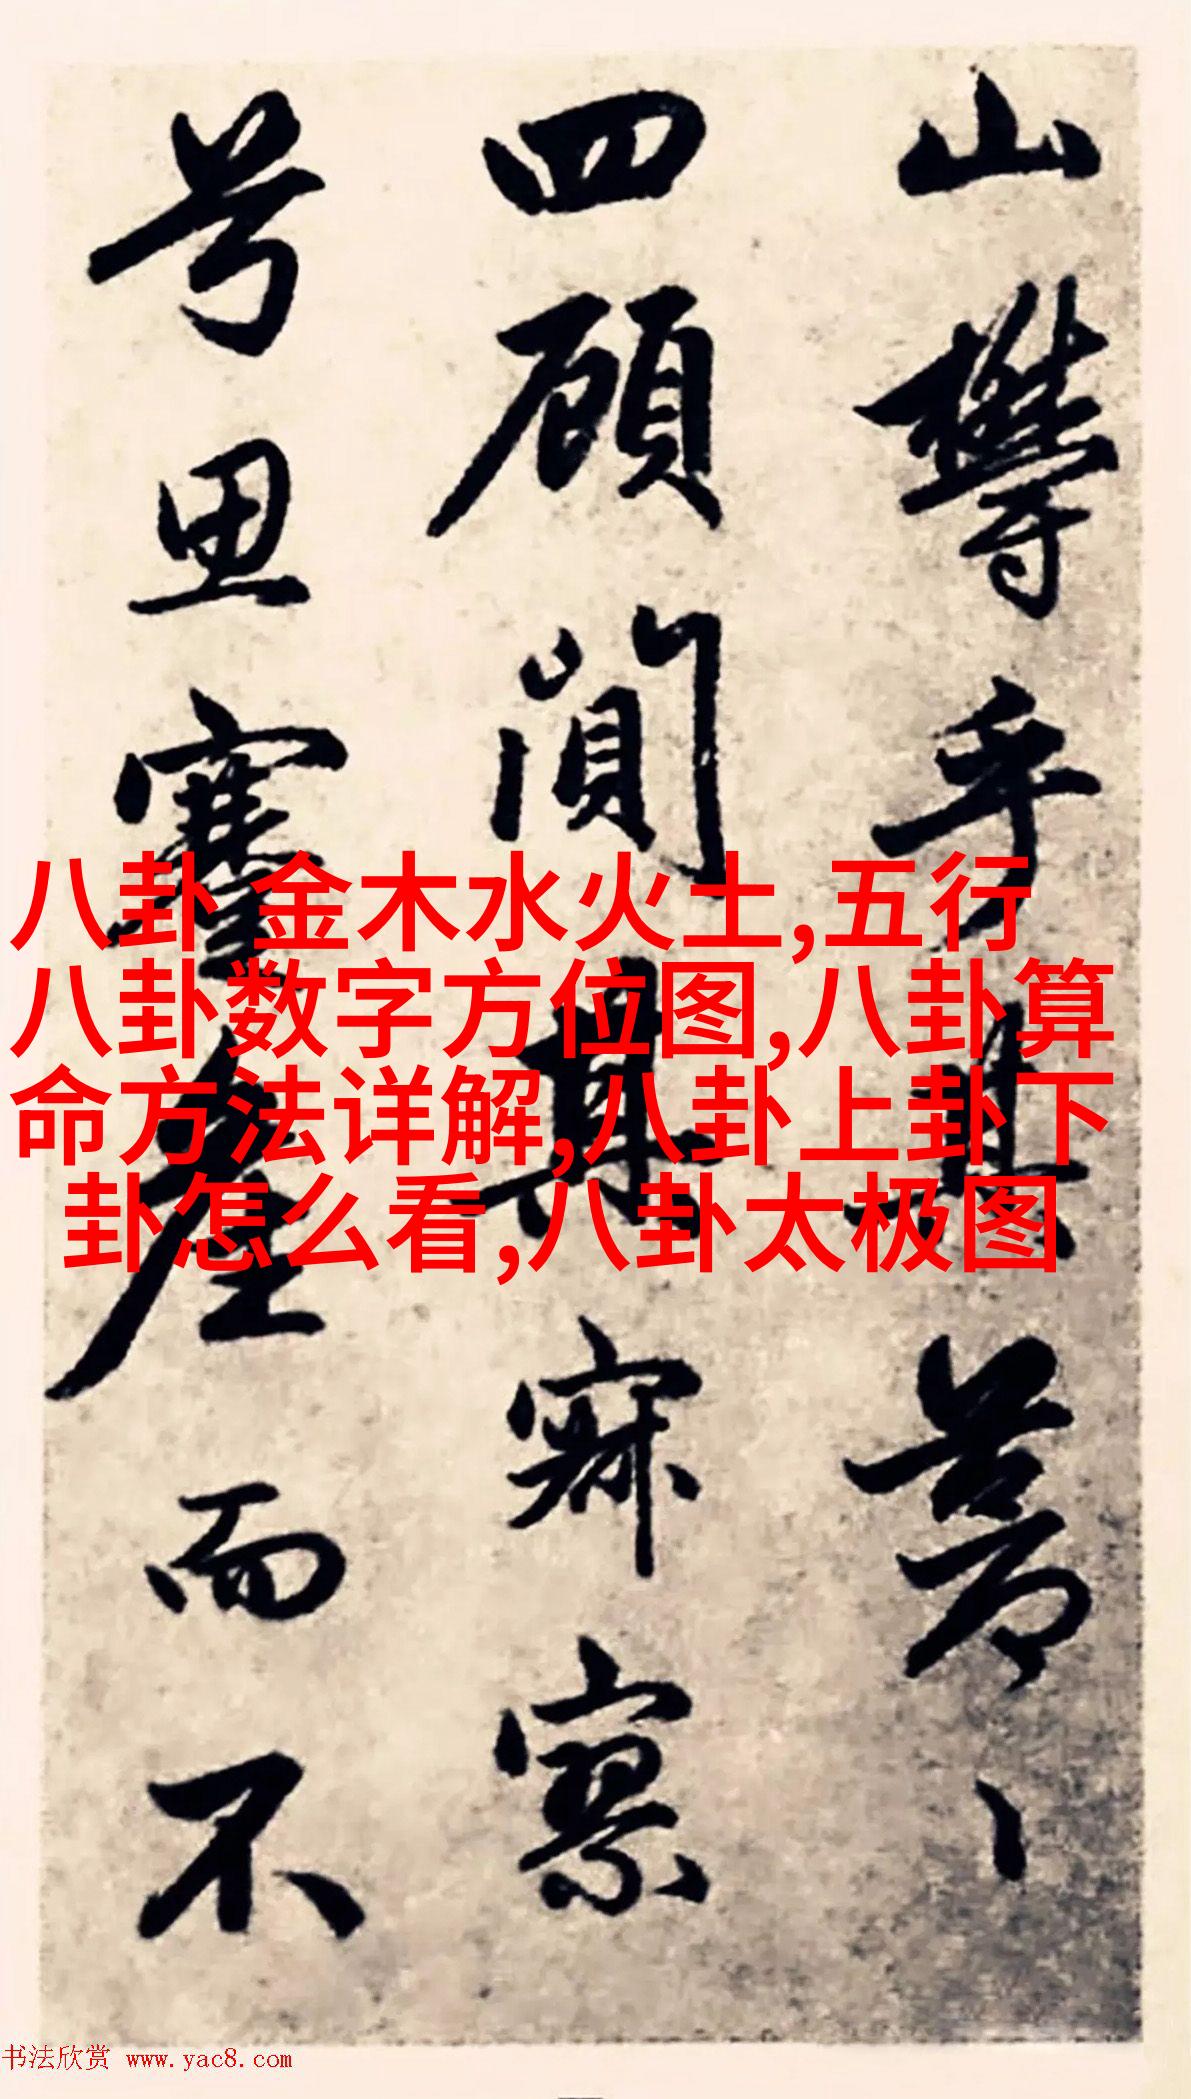 山欝乎其蒼〻
四顧闃其寂寥
兮思蹇產而不
八卦 金木水火土,五行
八卦数字方位图,八卦算
命方法详解,八卦上卦下
卦怎么看,八卦太极图
书法欣赏 www.yac8.com